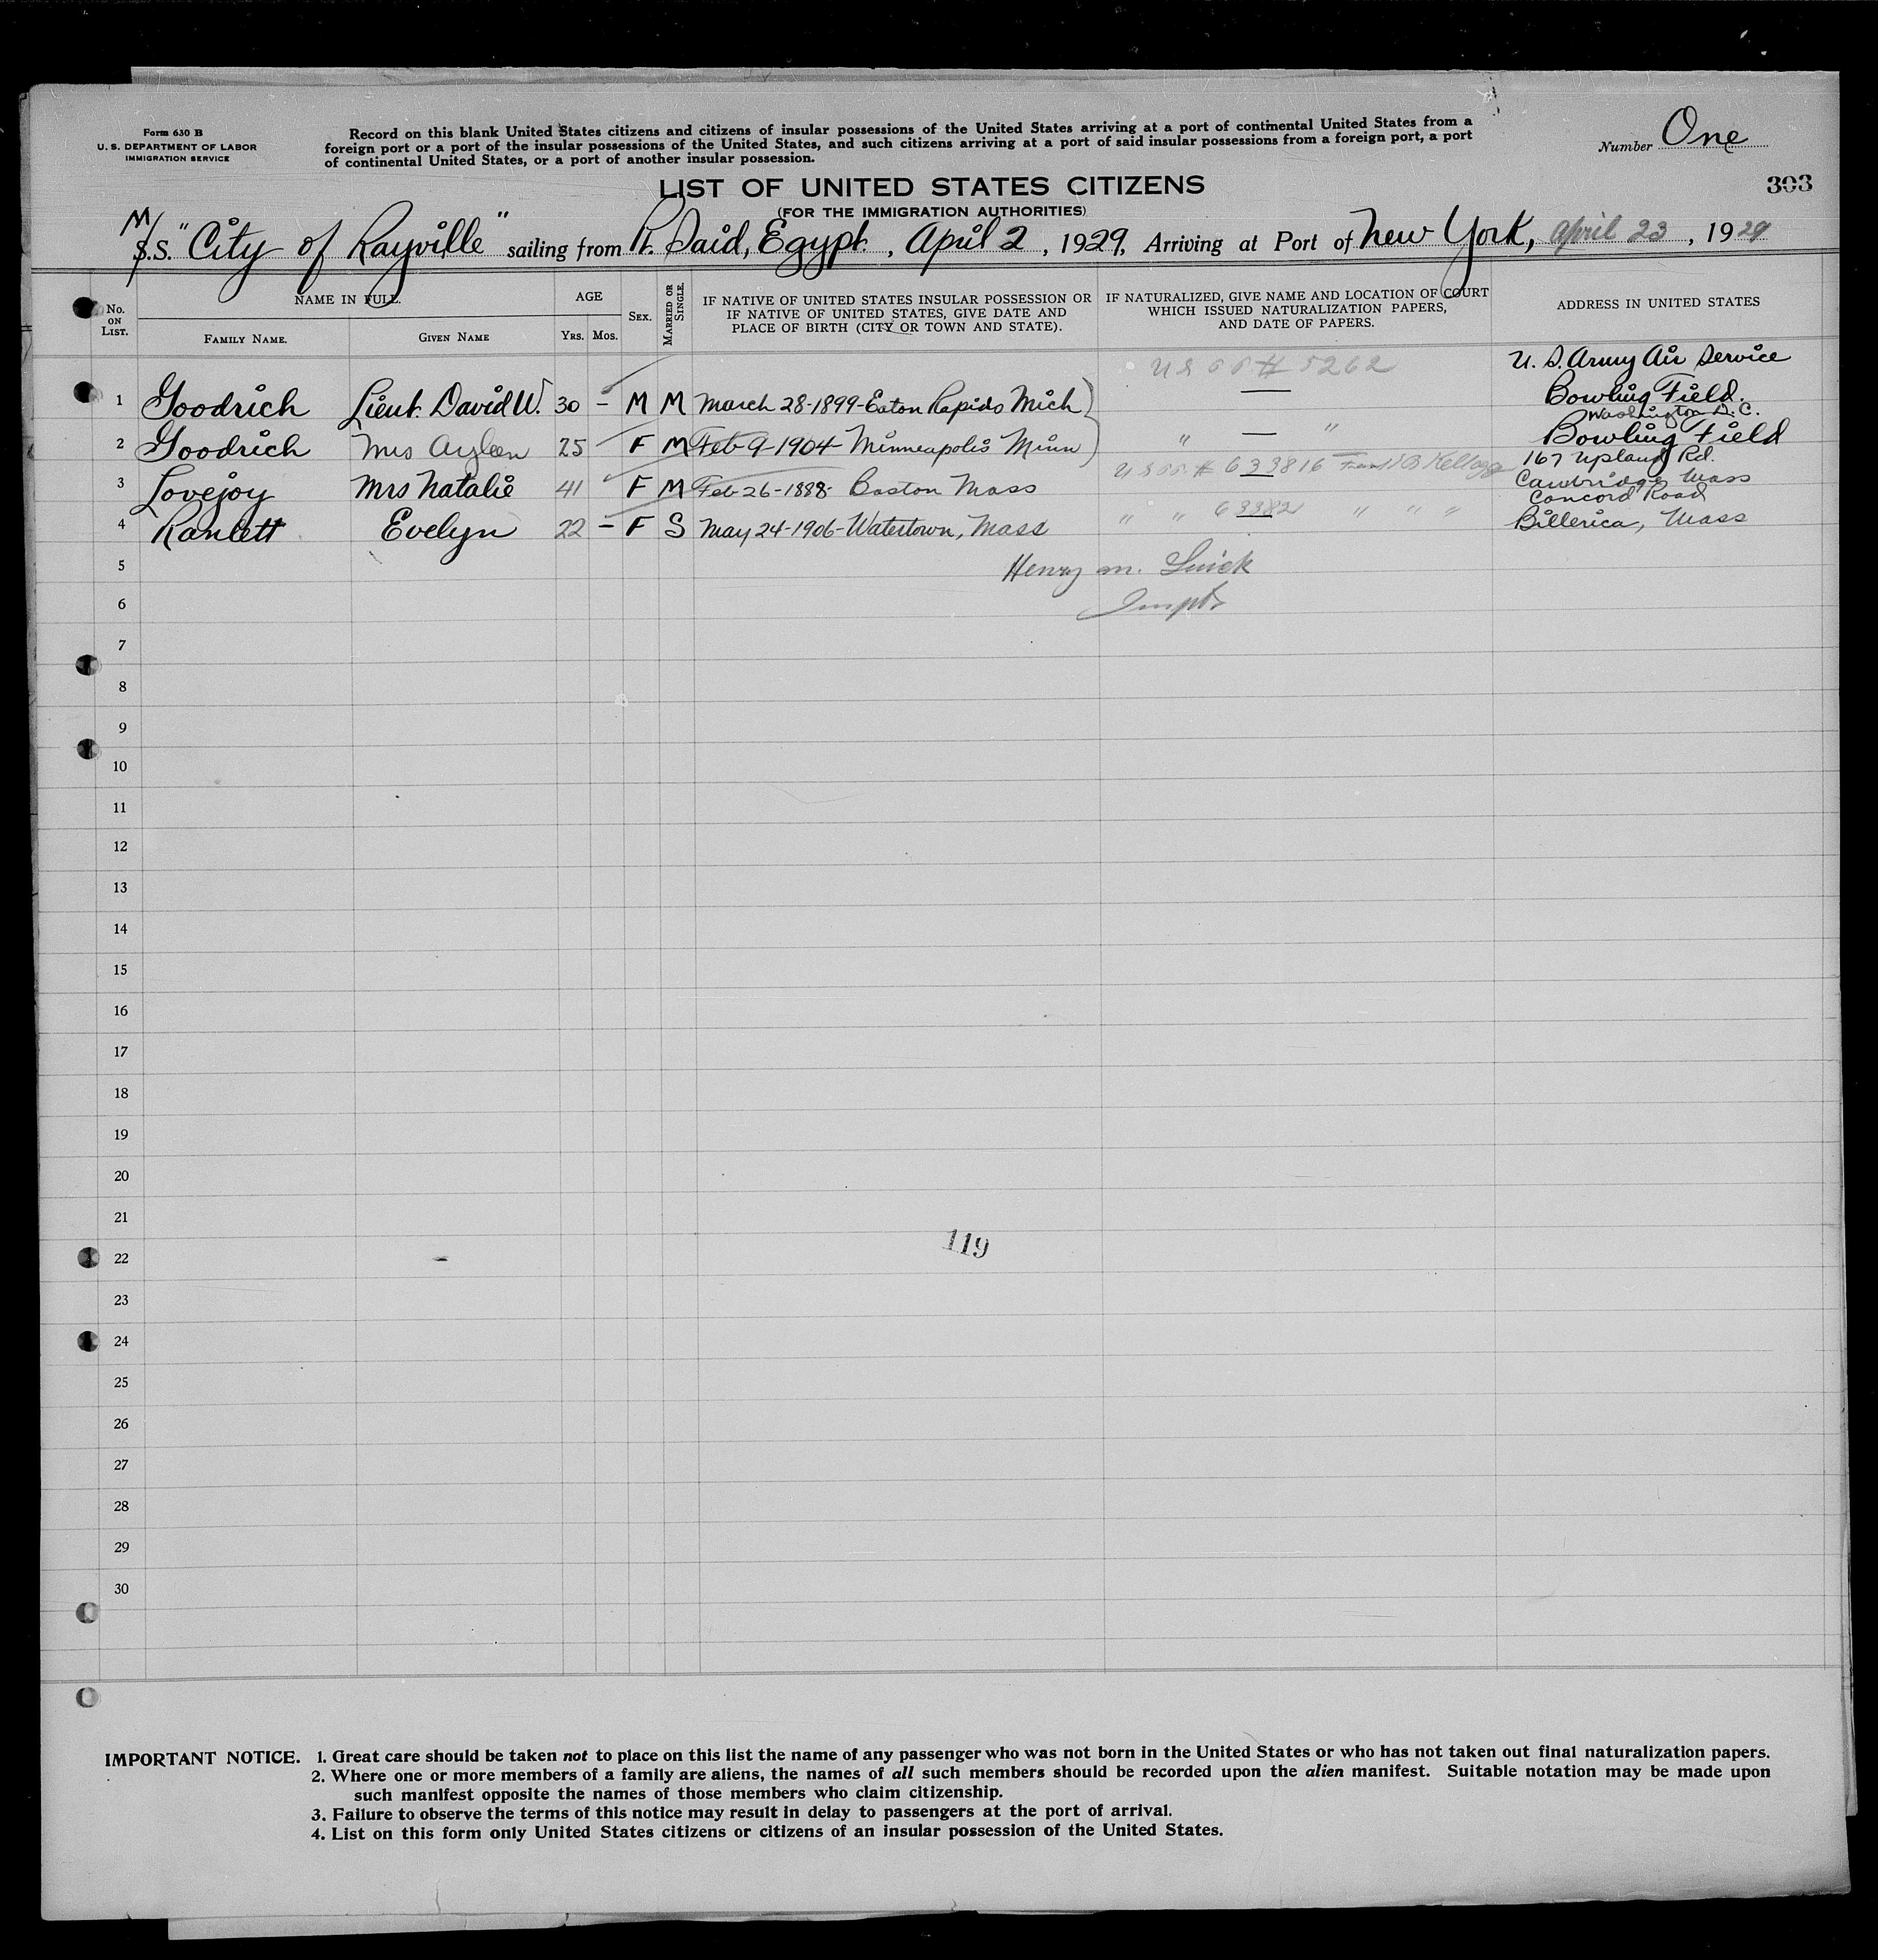 Form 630 B
U. S. DEPARTMENT OF LABOR
IMMIGRATION SERVICE
Record on this blank United States citizens and citizens of insular possessions of the United States arriving at a port of continental United States from a
foreign port or a port of the insular possessions of the United States, and such citizens arriving at a port of said insular possessions from a foreign port, a port
of continental United States, or a port of another insular possession.
Number One
303
LIST OF UNITED STATES CITIZENS
(FOR THE IMMIGRATION AUTHORITIES)
M/
S.S. "City of Rayville" sailing from Pt. Said, Egypt., April 2, 1929, Arriving at Port of New York, April 23, 1929
No. ON LIST.
NAME IN FULL.
FAMILY NAME.
GIVEN NAME
AGE
YRS. MOS.
SEX.
MARRIED OR SINGLE.
IF NATIVE OF UNITED STATES INSULAR POSSESSION OR
IF NATIVE OF UNITED STATES, GIVE DATE AND
PLACE OF BIRTH (CITY OR TOWN AND STATE).
IF NATURALIZED, GIVE NAME AND LOCATION OF COURT
WHICH ISSUED NATURALIZATION PAPERS,
AND DATE OF PAPERS.
ADDRESS IN UNITED STATES
U S PP # 5262
U. S. Army Air Service
1 Goodrich Lieut. David W. 30 - M M March 28-1899-Eaton Rapids Mich) — Bowling Field.
Washington D.C.
2 Goodrich Mrs Ayleen 25 F M Feb-9-1904-Minneapolis Minn) " — " Bowling Field
U S PP. # 633816 Kellogg 167 Upland Rd.
3 Lovejoy Mrs Natalie 41 F M Feb-26-1888- Boston Mass — Cambridge Mass
" " 63382 " " " Concord Road
4 Ranlett Evelyn 22 - F S May 24-1906-Watertown, Mass — Billerica, Mass
5 Henry M.
6
7
8
9
10
11
12
13
14
15
16
17
18
19
20
21
119
22
23
24
25
26
27
28
29
30
IMPORTANT NOTICE. 1. Great care should be taken not to place on this list the name of any passenger who was not born in the United States or who has not taken out final naturalization papers.
2. Where one or more members of a family are aliens, the names of all such members should be recorded upon the alien manifest. Suitable notation may be made upon
such manifest opposite the names of those members who claim citizenship.
3. Failure to observe the terms of this notice may result in delay to passengers at the port of arrival.
4. List on this form only United States citizens or citizens of an insular possession of the United States.